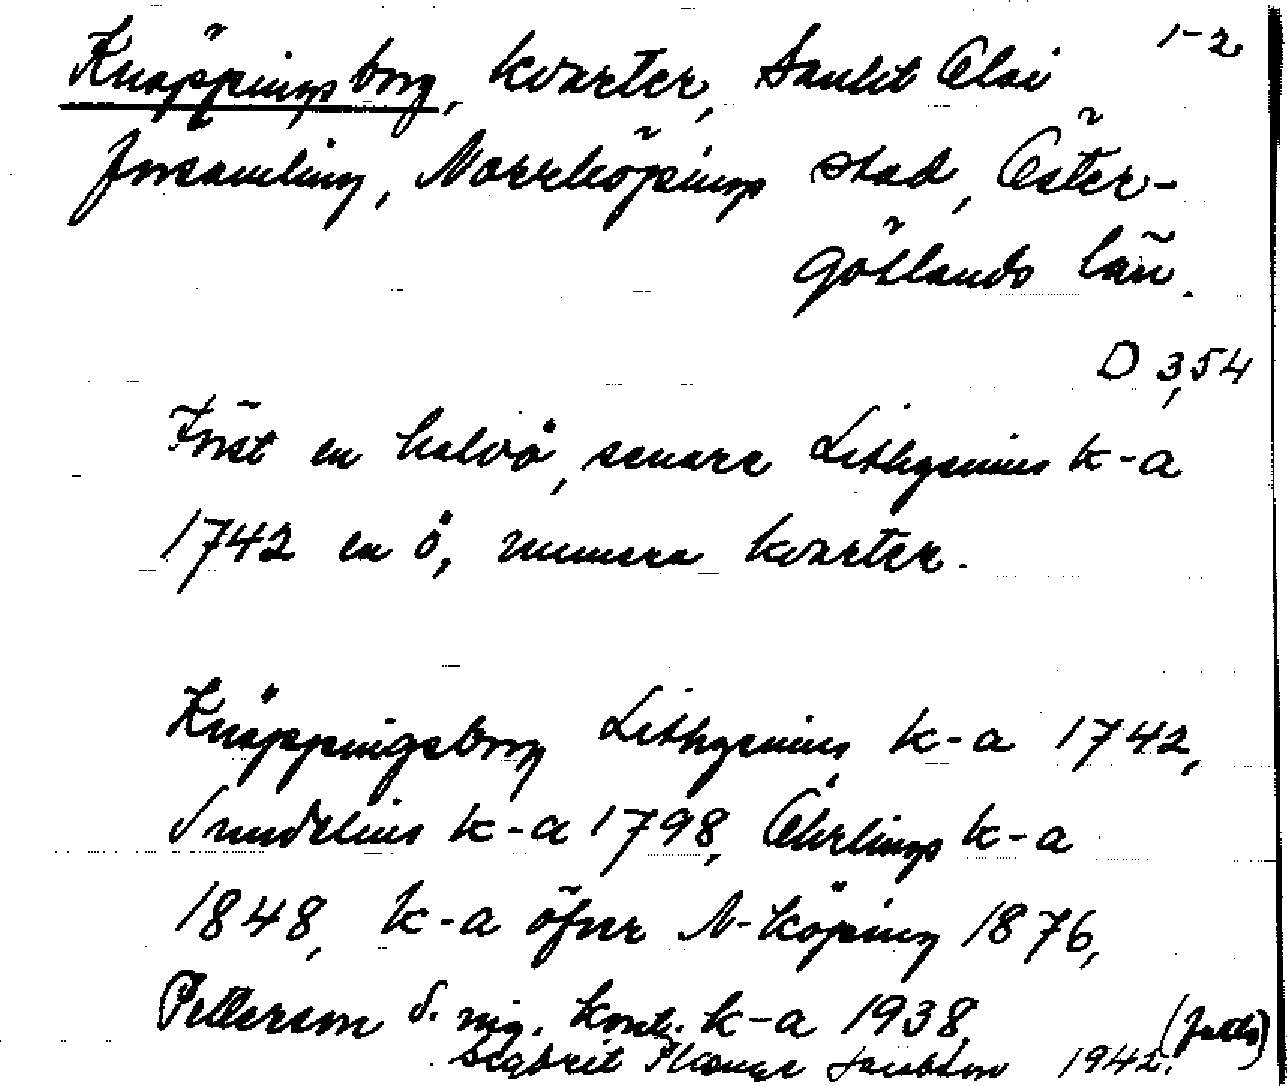 1-2
Knäppingsborg, kvarter, Sankt Olai
församling, Norrköpings stad, Öster-
götlands län.
D 3,54
Först en halvö, senare Lithzenius k-a
1742 en ö, numera kvarter.
Knäppingsborg Lithzenius k-a 1742,
Sundelius k-a 1798, Öhrlings k-a
1848, k-a öfver N-köping 1876,
Petterson S. ing. kont. k-a 1938
Sigbrit Plænge Jacobson 1942. (forts)